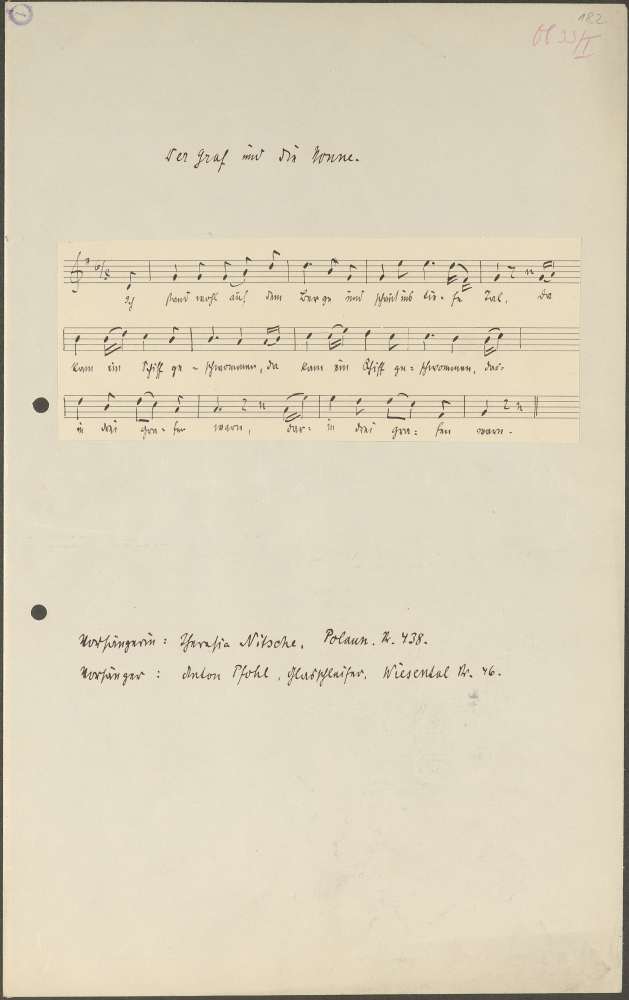 182
Der Graf und die Nonne.
6/8
Ich stand wohl auf dem Berge und schaut ins tie- fe Tal, da
kam ein Schiff ge - schwommen, da kam ein Schiff ge - schwommen, dar-
in drei Gra - fen warn, dar - in drei Gra - fen warn.
Vorsängerin : Theresia Nitsche, Polaun. Nr. 438.
Vorsänger : Anton Pfohl, Glasschleifer, Wiesental Nr. 46.